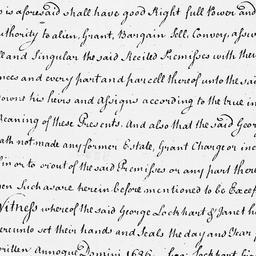 is aforesaid shall have good Right full Power and
uthority to alien, Grant, Bargain Sell, Convey, assure
ll and Singular the said Recited Premisses with their
nces and every part and parcell thereof unto the said
owne his heirs and Assigns according to the true in
eaning of these Presents. And also that the said Geor
ath not made any former Estate, Grant Charge or inc
in or to or out of the said Premisses or any part there
en Such as are herein before mentioned to be Excep
Witness whereof the said George Lockhart & Janet h
ereunto set their hands and Seals the day and Year f
written Annoque Domini 1686